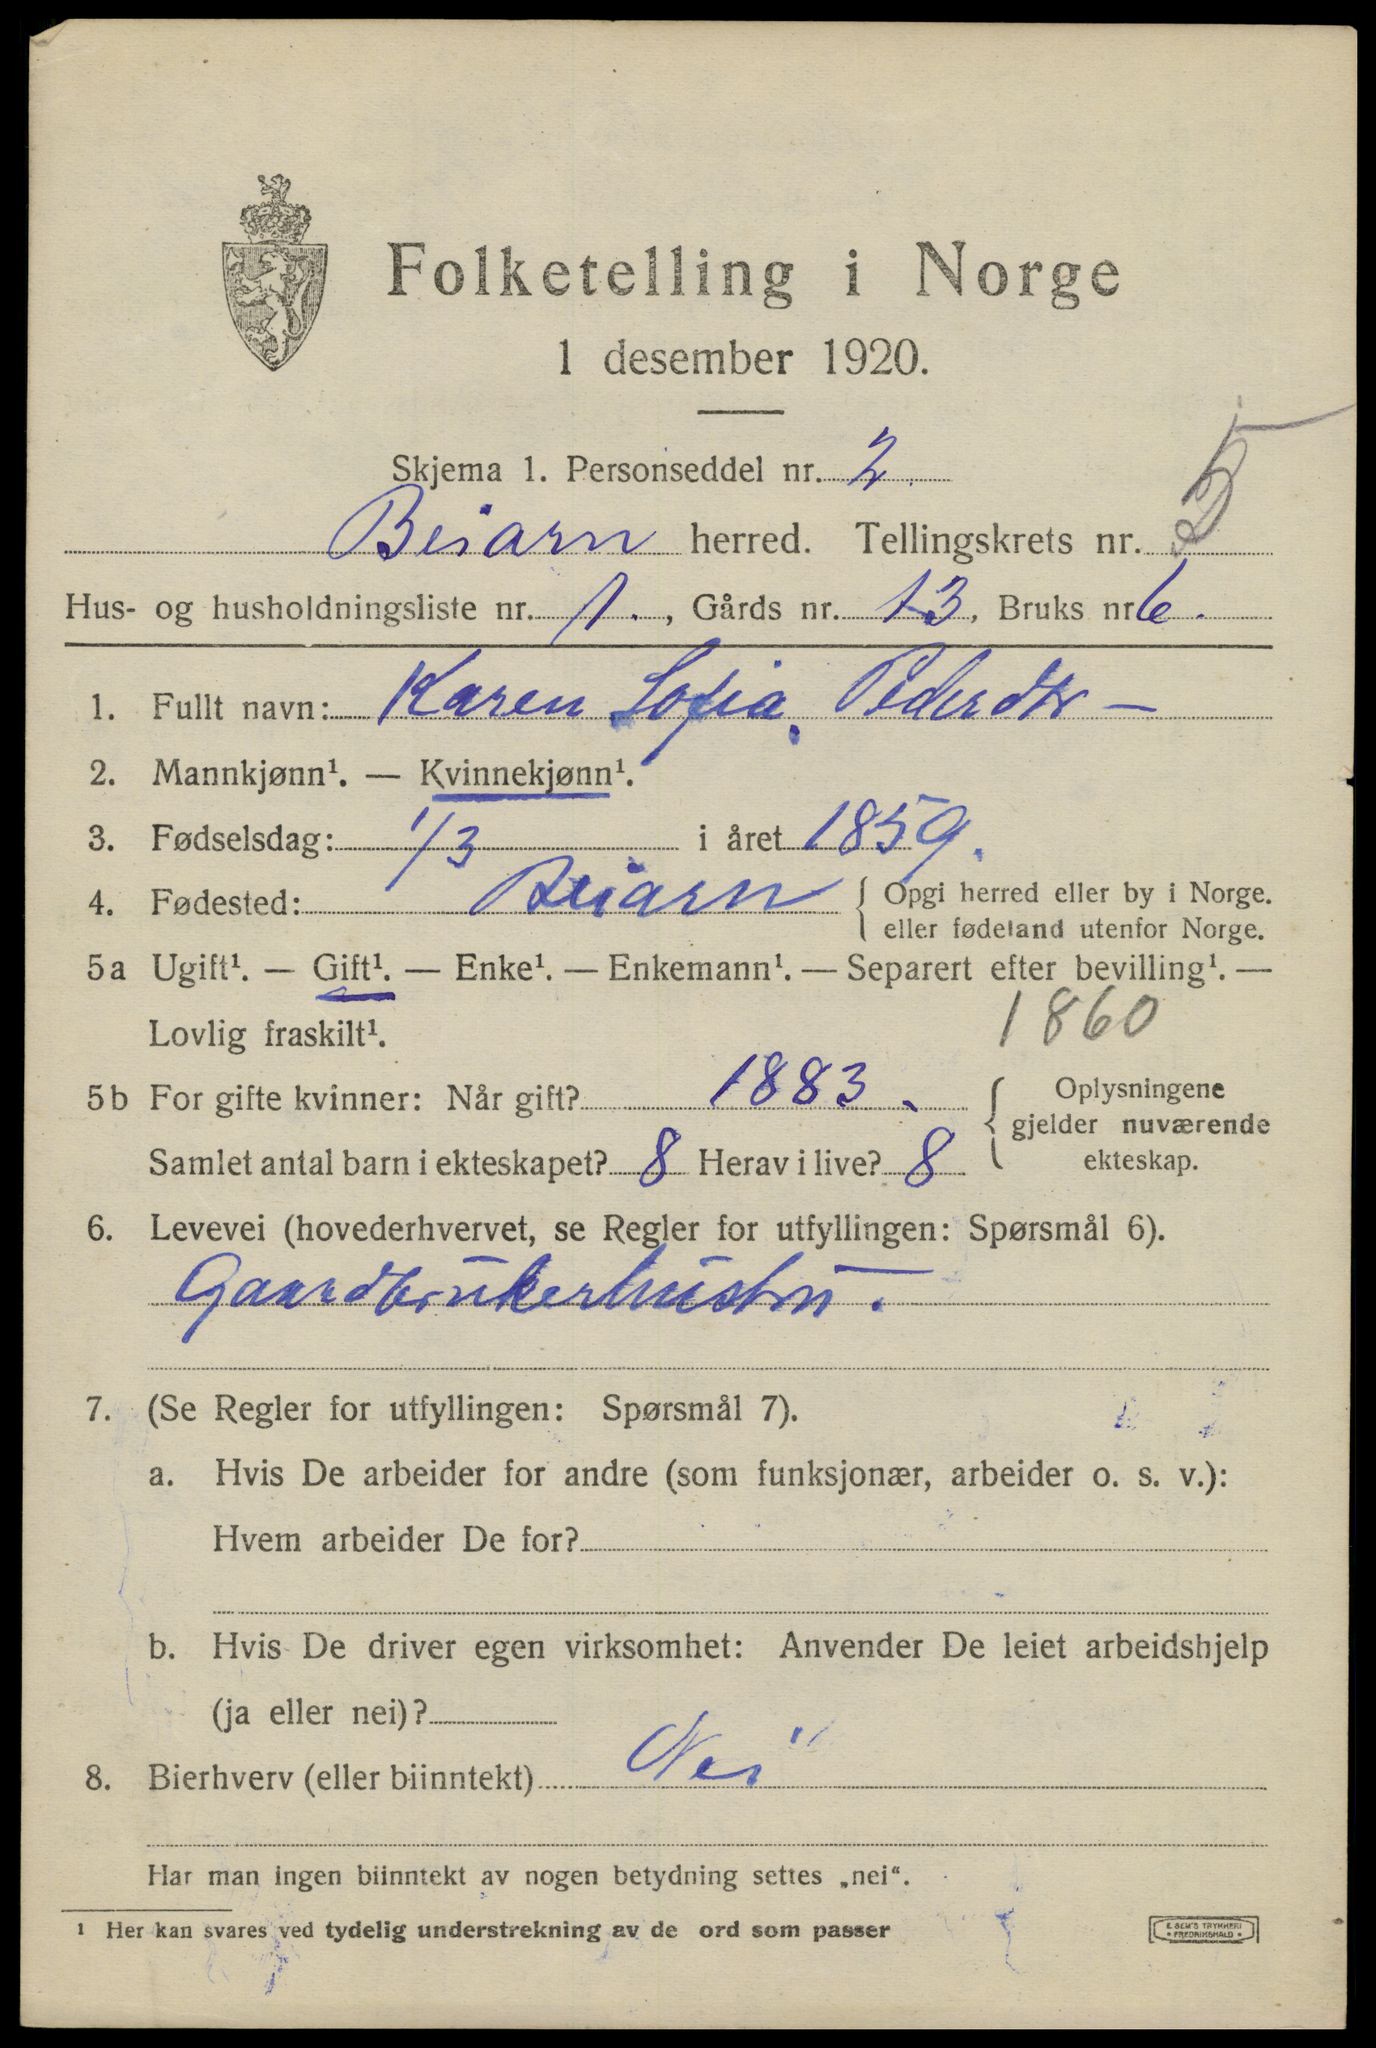 Folketelling i Norge
1 desember 1920.
Skjema 1. Personseddel nr. 2
Beiarn herred. Tellingskrets nr. 5
Hus- og husholdningsliste nr. 1., Gårds nr. 13, Bruks nr 6.
1. Fullt navn: Karen Sofia Pederdtr —
2. Mannkjønn¹. — Kvinnekjønn¹.
3. Fødselsdag: 1/3 i året 1859.
4. Fødested: Beiarn { Opgi herred eller by i Norge.
eller fødeland utenfor Norge.
5a Ugift¹. — Gift¹. — Enke¹. — Enkemann¹. — Separert efter bevilling¹. —
Lovlig fraskilt¹. 1860
5b For gifte kvinner: Når gift? 1883. { Oplysningene
gjelder nuværende
Samlet antal barn i ekteskapet? 8 Herav i live? 8 ekteskap.
6. Levevei (hovederhvervet, se Regler for utfyllingen: Spørsmål 6).
Gaardbrukerhustru.
7. (Se Regler for utfyllingen: Spørsmål 7).
a. Hvis De arbeider for andre (som funksjonær, arbeider o. s. v.):
Hvem arbeider De for?
b. Hvis De driver egen virksomhet: Anvender De leiet arbeidshjelp
(ja eller nei)?
8. Bierhverv (eller biinntekt) Nei
Har man ingen biinntekt av nogen betydning settes „nei“.
¹ Her kan svares ved tydelig understrekning av de ord som passer
E. SEM'S TRYKKERI
• FREDRIKSHALD •